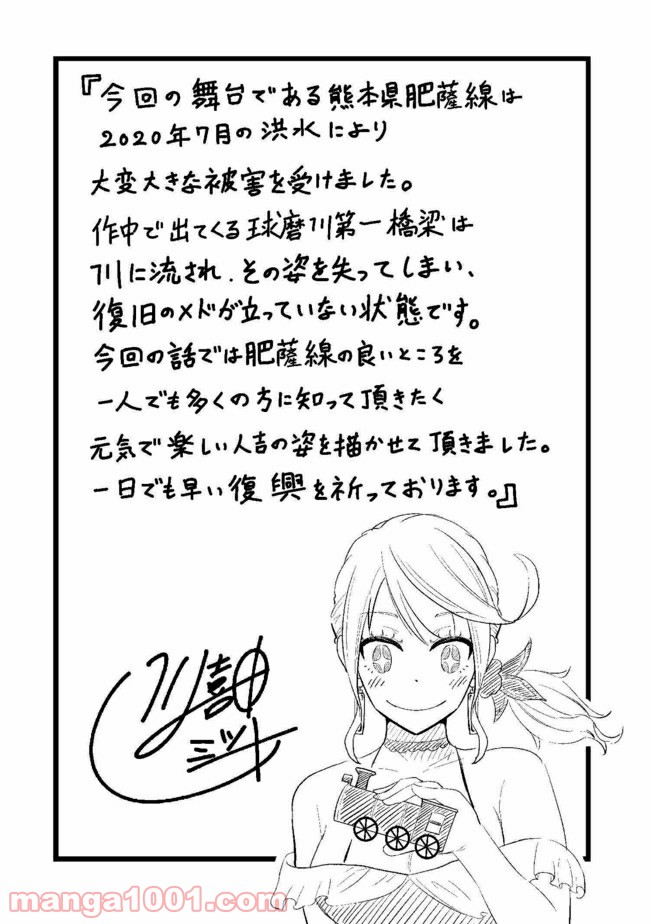 『今回の舞台である熊本県肥薩線は
2020年7月の洪水により
大変大きな被害を受けました。
作中で出てくる球磨川第一橋梁は
川に流され、その姿を失ってしまい、
復旧のメドが立っていない状態です。
今回の話では肥薩線の良いところを
一人でも多くの方に知って頂きたく
元気で楽しい人吉の姿を描かせて頂きました。
一日でも早い復興を祈っております。』
manga1001.com